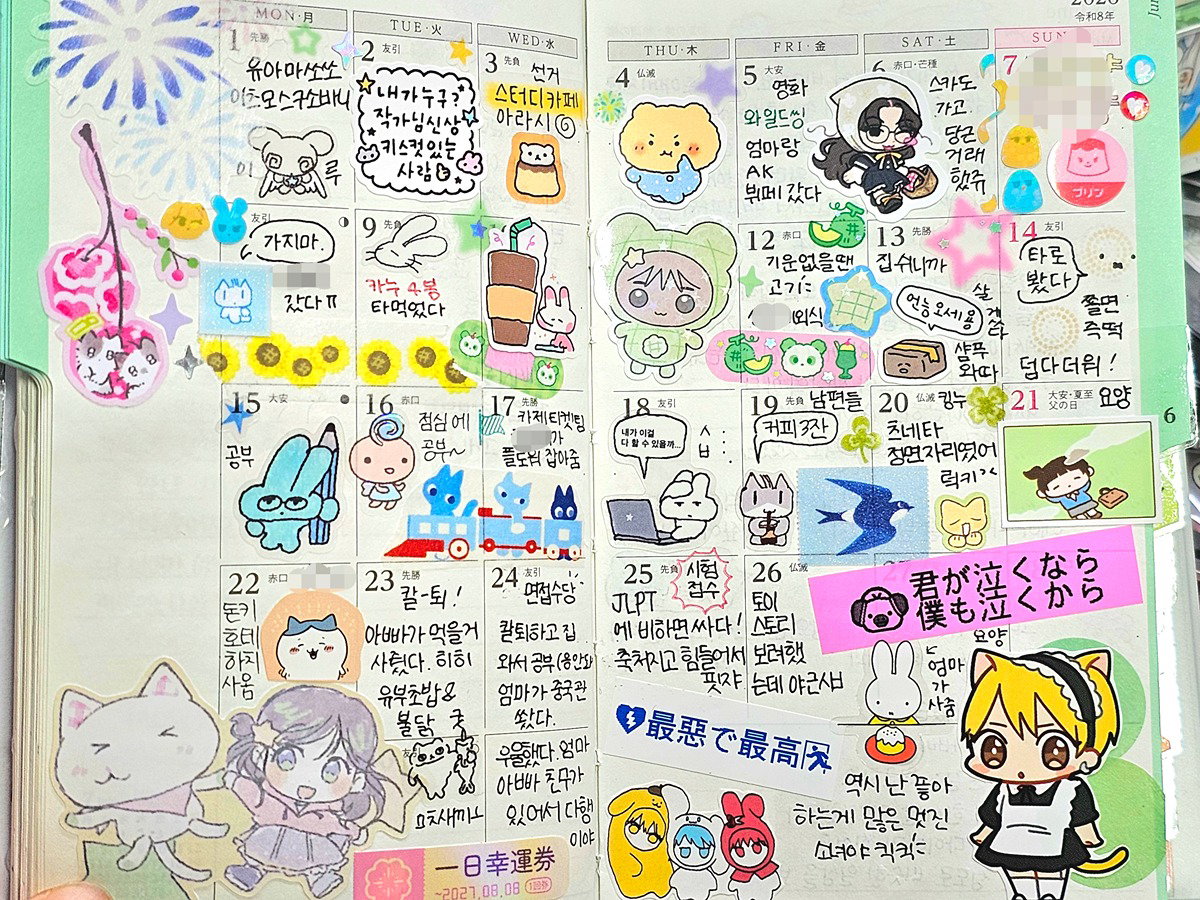 MON・月
TUE・火
WED・水
THU・木
FRI・金
SAT・土
SUN
令和8年
1 先勝
유아마쏘쏘
이츠모스구소바니
이
루
2 友引
내가누구?
작가님신상
키스컷있는
사람
3 先負
선거
스터디카페
아라시
4 仏滅
5 大安
영화
와일드씽
엄마랑
AK
뷔페 갔다
6 赤口・芒種
스카도
가고
당근
거래
했쥬
7
プリン
友引
가지마.
갔다ㅠ
9 先負
카누 4봉
타먹었다
12 赤口
기운없을땐
고기
외식
13 先勝
집쉬니까
언능오세용
살
샴푸
와따
14 友引
타로
봤다
쫄면
즉떡
덥다더워!
15 大安
공부
16 赤口
점심에
공부~
17 先勝
카제티켓팅
가
플로워 잡아줌
18 友引
내가 이걸
다 할 수 있을까...
19 先負
남편들
커피3잔
20 仏滅
킹누
츠네타
정면자리였어
럭키
21 大安・夏至
父の日
요양
6
22 赤口
돈키
호테
하지
사옴
23 先勝
칼-퇴!
아빠가 먹을거
사줬다. 히히
유부초밥&
불닭
24 友引
면접수당
칼퇴하고 집
와서 공부(응안와
엄마가 중국관
쐈다.
우울했다. 엄마
아빠바 친구가
있어서 다행
이야
25 先負
시험
접수
JLPT
에 비하면 싸다!
축쳐지고 힘들어서
핏자
26 仏滅
토이
스토리
보려했
는데 야근샤바
27
君が泣くなら
僕も泣くから
요양
엄마
가
사줌
最悪で最高
역시 난 좋아
하는게 많은 멋진
소녀야 킥킥
一日幸運券
~2027.08.08 1回券